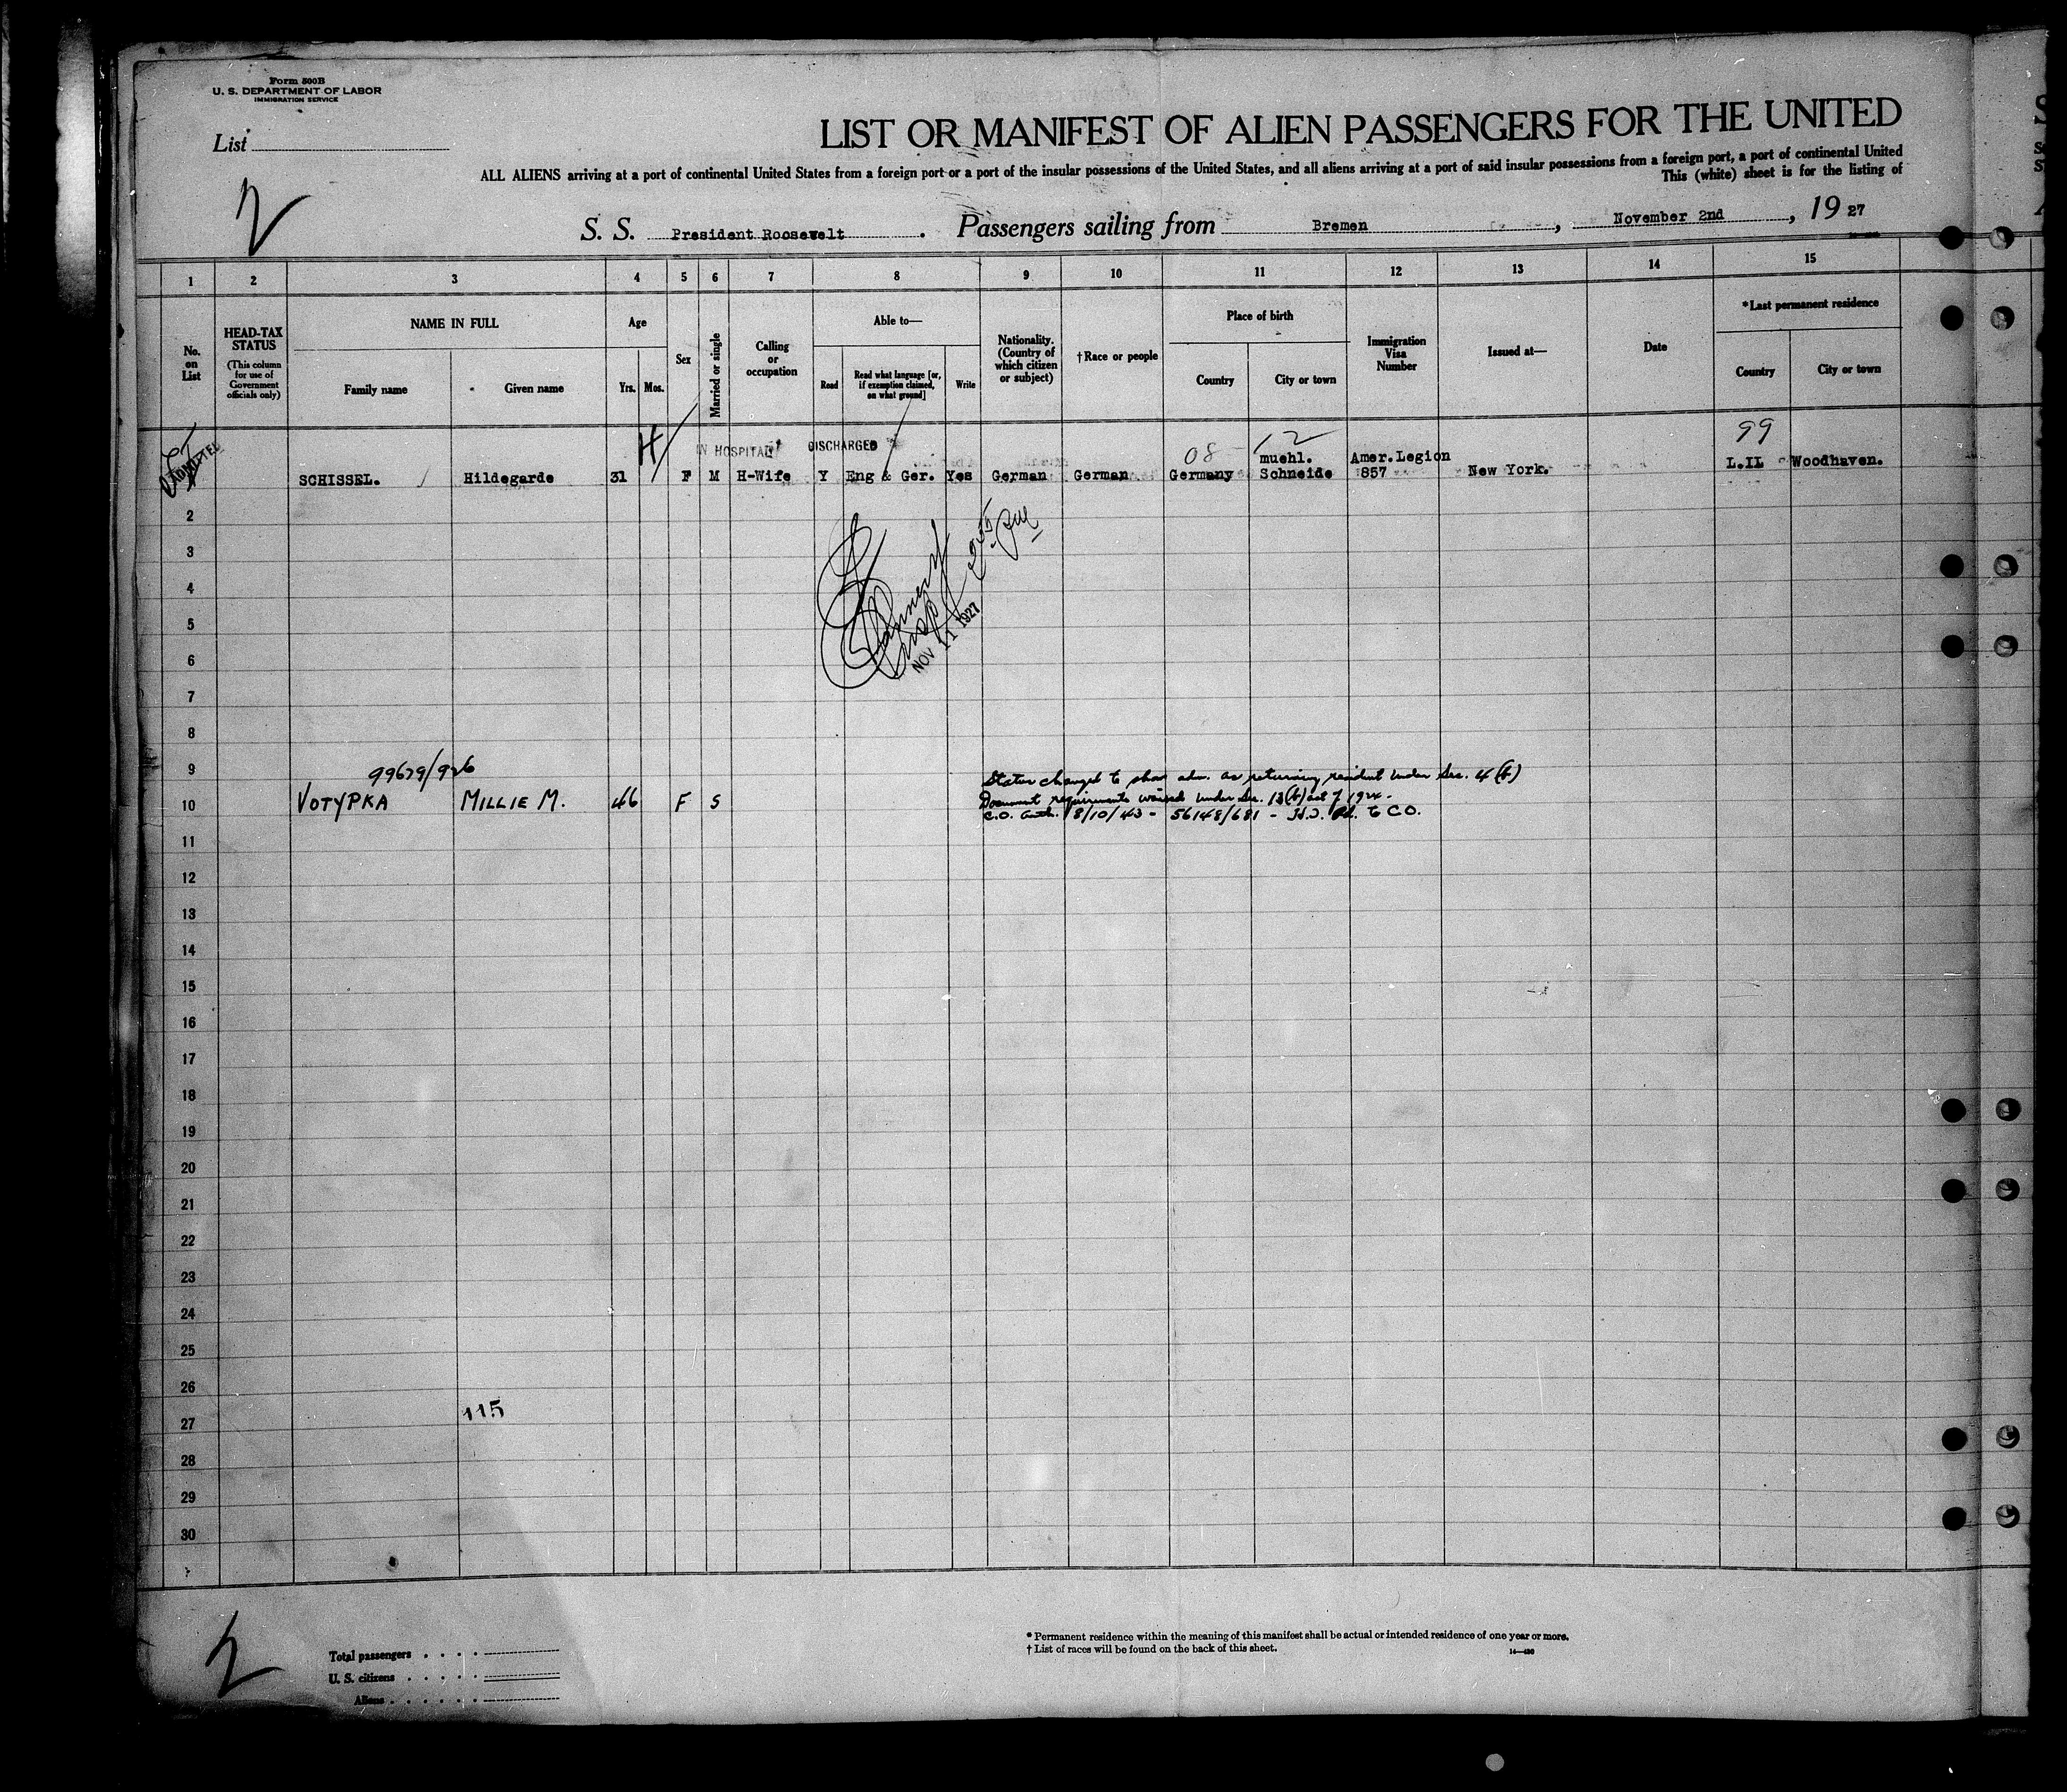 Form 500B
U. S. DEPARTMENT OF LABOR
IMMIGRATION SERVICE
List
2
LIST OR MANIFEST OF ALIEN PASSENGERS FOR THE UNITED
ALL ALIENS arriving at a port of continental United States from a foreign port or a port of the insular possessions of the United States, and all aliens arriving at a port of said insular possessions from a foreign port, a port of continental United
This (white) sheet is for the listing of
S. S. President Roosevelt . Passengers sailing from Bremen , November 2nd , 19 27
1 2 3 4 5 6 7 8 9 10 11 12 13 14 15
No. on List
HEAD-TAX STATUS (This column for use of Government officials only)
NAME IN FULL
Family name Given name
Age
Yrs. Mos.
Sex
Married or single
Calling or occupation
Able to—
Read Read what language [or, if exemption claimed, on what ground] Write
Nationality. (Country of which citizen or subject)
†Race or people
Place of birth
Country City or town
Immigration Visa Number
Issued at—
Date
*Last permanent residence
Country City or town
ADMITTED
H IN HOSPITAL DISCHARGED 08 12 99
muehl. Amer.Legion
SCHISSEL. Hildegarde 31 F M H-Wife Y Eng & Ger. Yes German German Germany Schneide 857 New York. L.II Woodhaven.
2
3
4
5
NOV 11 1927
6
7
8
9 99679/926
Status changed to show adm. as returning resident under Sec. 4(b)
10 VOTYPKA MILLIE M. 46 F S Document requirements waived under Sec. 13(b) act of 1924.
C.O. auth. 8/10/43 - 56148/681 - to C.O.
11
12
13
14
15
16
17
18
19
20
21
22
23
24
25
26
115
27
28
29
30
2
Total passengers
U. S. citizens
Aliens
* Permanent residence within the meaning of this manifest shall be actual or intended residence of one year or more.
† List of races will be found on the back of this sheet.
14—430